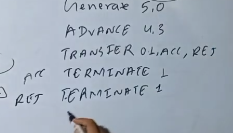 Generate 5,0
ADVANCE 4,3
TRANSFER 0.1,ACC, REJ
ACC TERMINATE 1
REJ TERMINATE 1